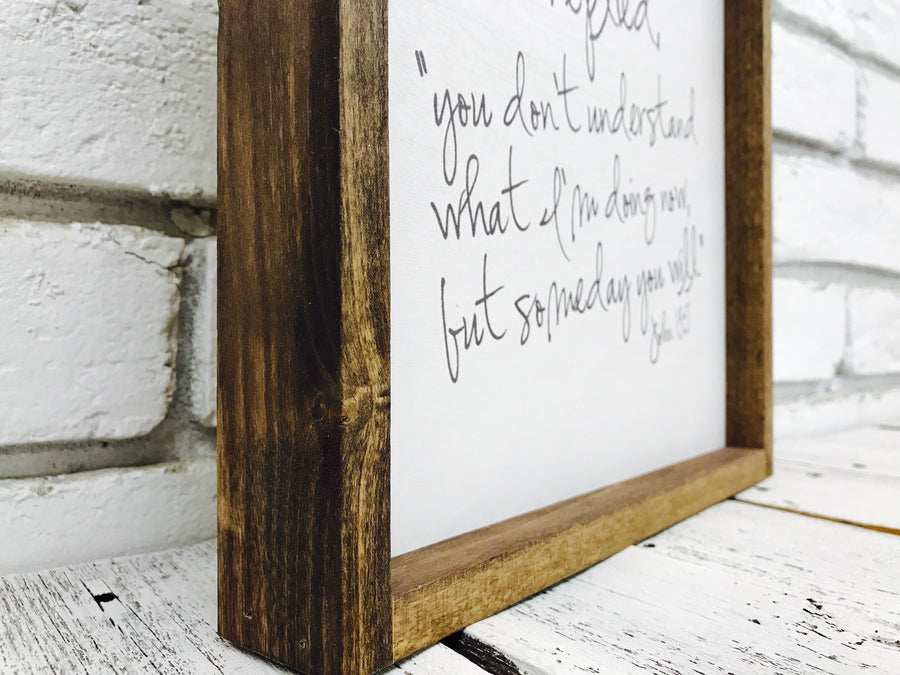 replied,
"you don't understand
what I'm doing now,
but someday you will"
John 13:7